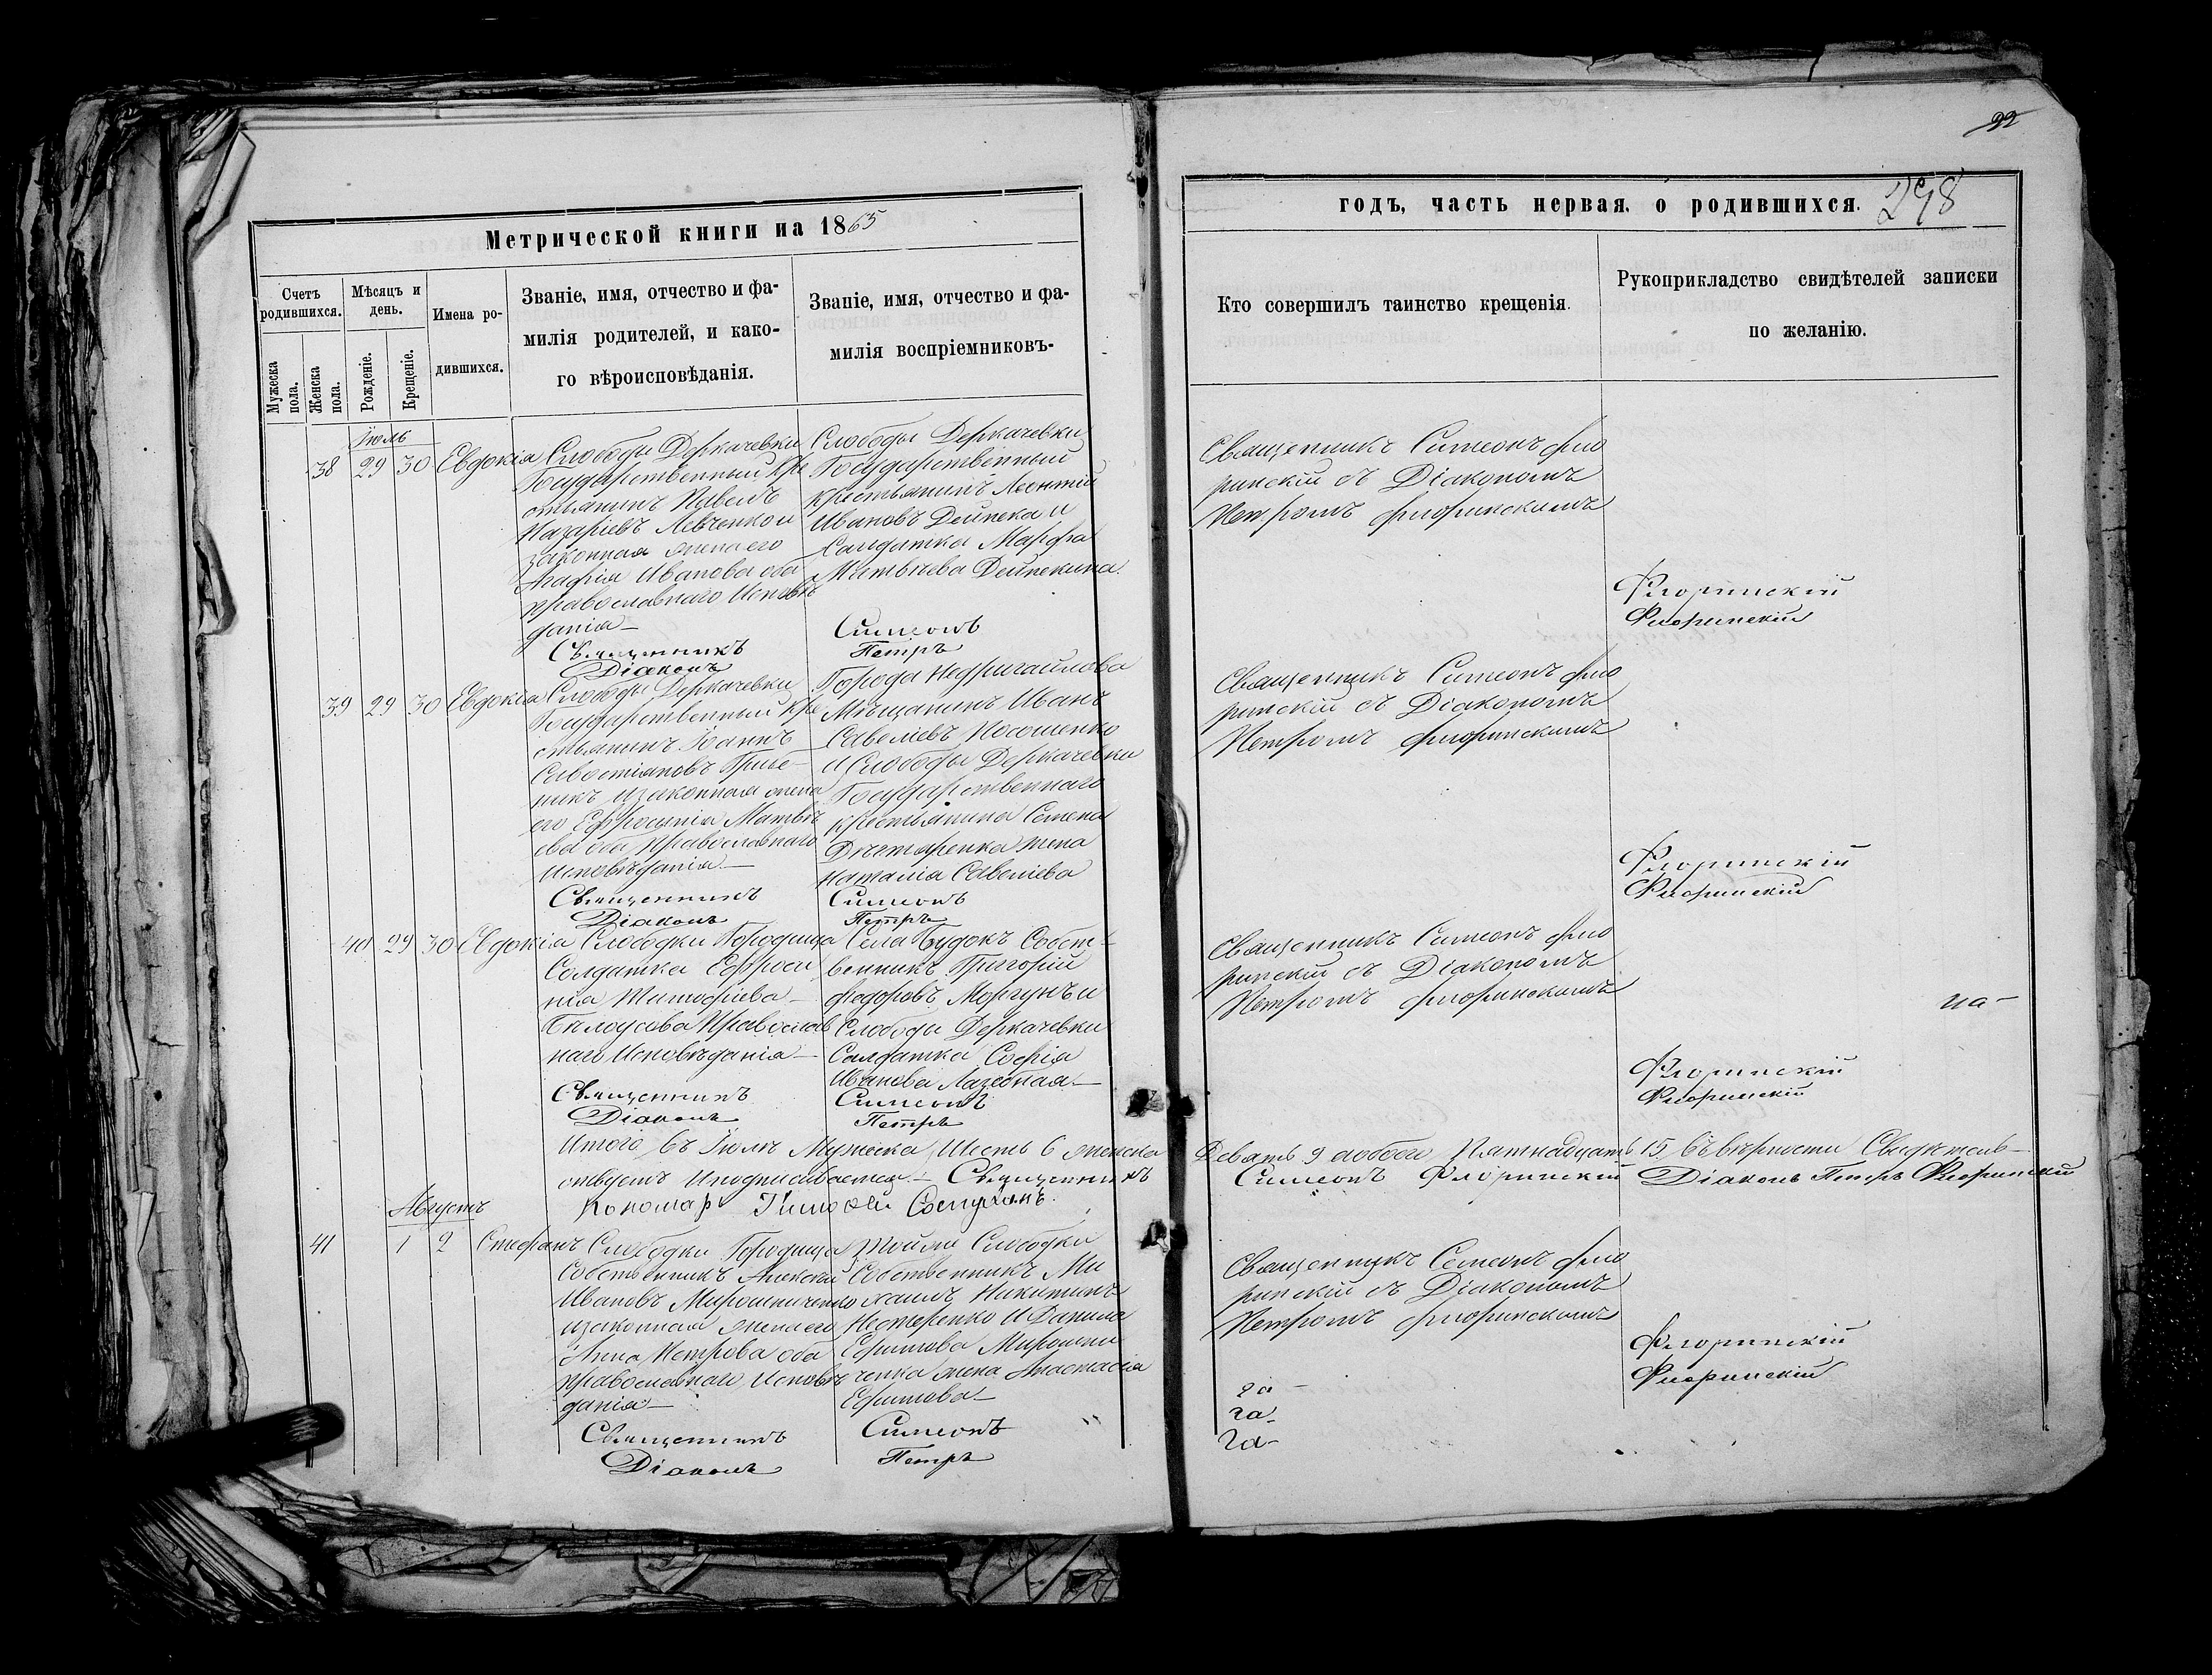 22
Метрической книги на 1865
годъ, часть первая, о родившихся.
298
Счетъ родившихся.
Мужеска пола.
Женска пола.
Мѣсяцъ и день.
Рожденіе.
Крещеніе.
Имена родившихся.
Званіе, имя, отчество и фа-
милія родителей, и како-
го вѣроисповѣданія.
Званіе, имя, отчество и фа-
милія воспріемниковъ-
Кто совершилъ таинство крещенія.
Рукоприкладство свидѣтелей записки
по желанію.
Іюль
38 29 30 Евдокія
Слободы Деркачевки
Государственный Кре
стьянинъ Павелъ
Назаріевъ Левченко и
законная жена его
Агафія Иванова оба
православнаго Исповѣ
данія
Слободы Деркачевки
Государственный
крестьянинъ Леонтій
Ивановъ Дейнека и
Салдатка Марфа
Матвѣева Дейнекина.
Священникъ Симеонъ Фло
ринскій съ Діакономъ
Петромъ Флоринскимъ
Священникъ Симеонъ Флоринскій
Діаконъ Петръ Флоринскій
39 29 30 Евдокія
Слободы Деркачевки
Государственный Кре
стьянинъ Іоаннъ
Севостіановъ Грице-
никъ и законная жена
его Ефросинія Матвѣ
ева оба Православнаго
Исповѣданія
Города Недригайлова
Мѣщанинъ Иванъ
Савеліевъ Носошенко
и Слободы Деркачевки
Государственнаго
крестьянина Семена
Дехтяренка жена
Наталія Савеліева
Священникъ Симеонъ Фло
ринскій съ Діакономъ
Петромъ Флоринскимъ
Священникъ Симеонъ Флоринскій
Діаконъ Петръ Флоринскій
40 29 30 Евдокія
Слободки Городища
Солдатка Ефроси
нія Тимофіева
Бѣлоусова Православ
наго Исповѣданія
Села Будокъ Собст-
венникъ Григорій
Федоровъ Моргунъ и
Слободы Деркачевки
Салдатка Софія
Иванова Лазебная
Священникъ Симеонъ Фло
ринскій съ Діакономъ
Петромъ Флоринскимъ
на
Священникъ Симеонъ Флоринскій
Діаконъ Петръ Флоринскій
Итого въ Іюлѣ Мужеска Шесть 6 женска Девять 9 обоего Пятнадцать 15. Въ вѣрности Свидѣтель-
ствуемъ и подписываемся. Священникъ Симеонъ Флоринскій Діаконъ Петръ Флоринскій
Пономарь Тимофей
Августъ
41 1 2 Стефанъ
Слободки Городища
Собственникъ Алексей
Ивановъ Мирошниченко
и законная жена его
Анна Петрова оба
православнаго Исповѣ
данія
Тойже Слободки
Собственникъ Ми
хаилъ Никитинъ
Нестеренко и Данила
Ефимова Мирошни
ченка жена Анастасія
Ефимова
Священникъ Симеонъ Фло
ринскій съ Діакономъ
Петромъ Флоринскимъ
га
га
га
Священникъ Симеонъ Флоринскій
Діаконъ Петръ Флоринскій